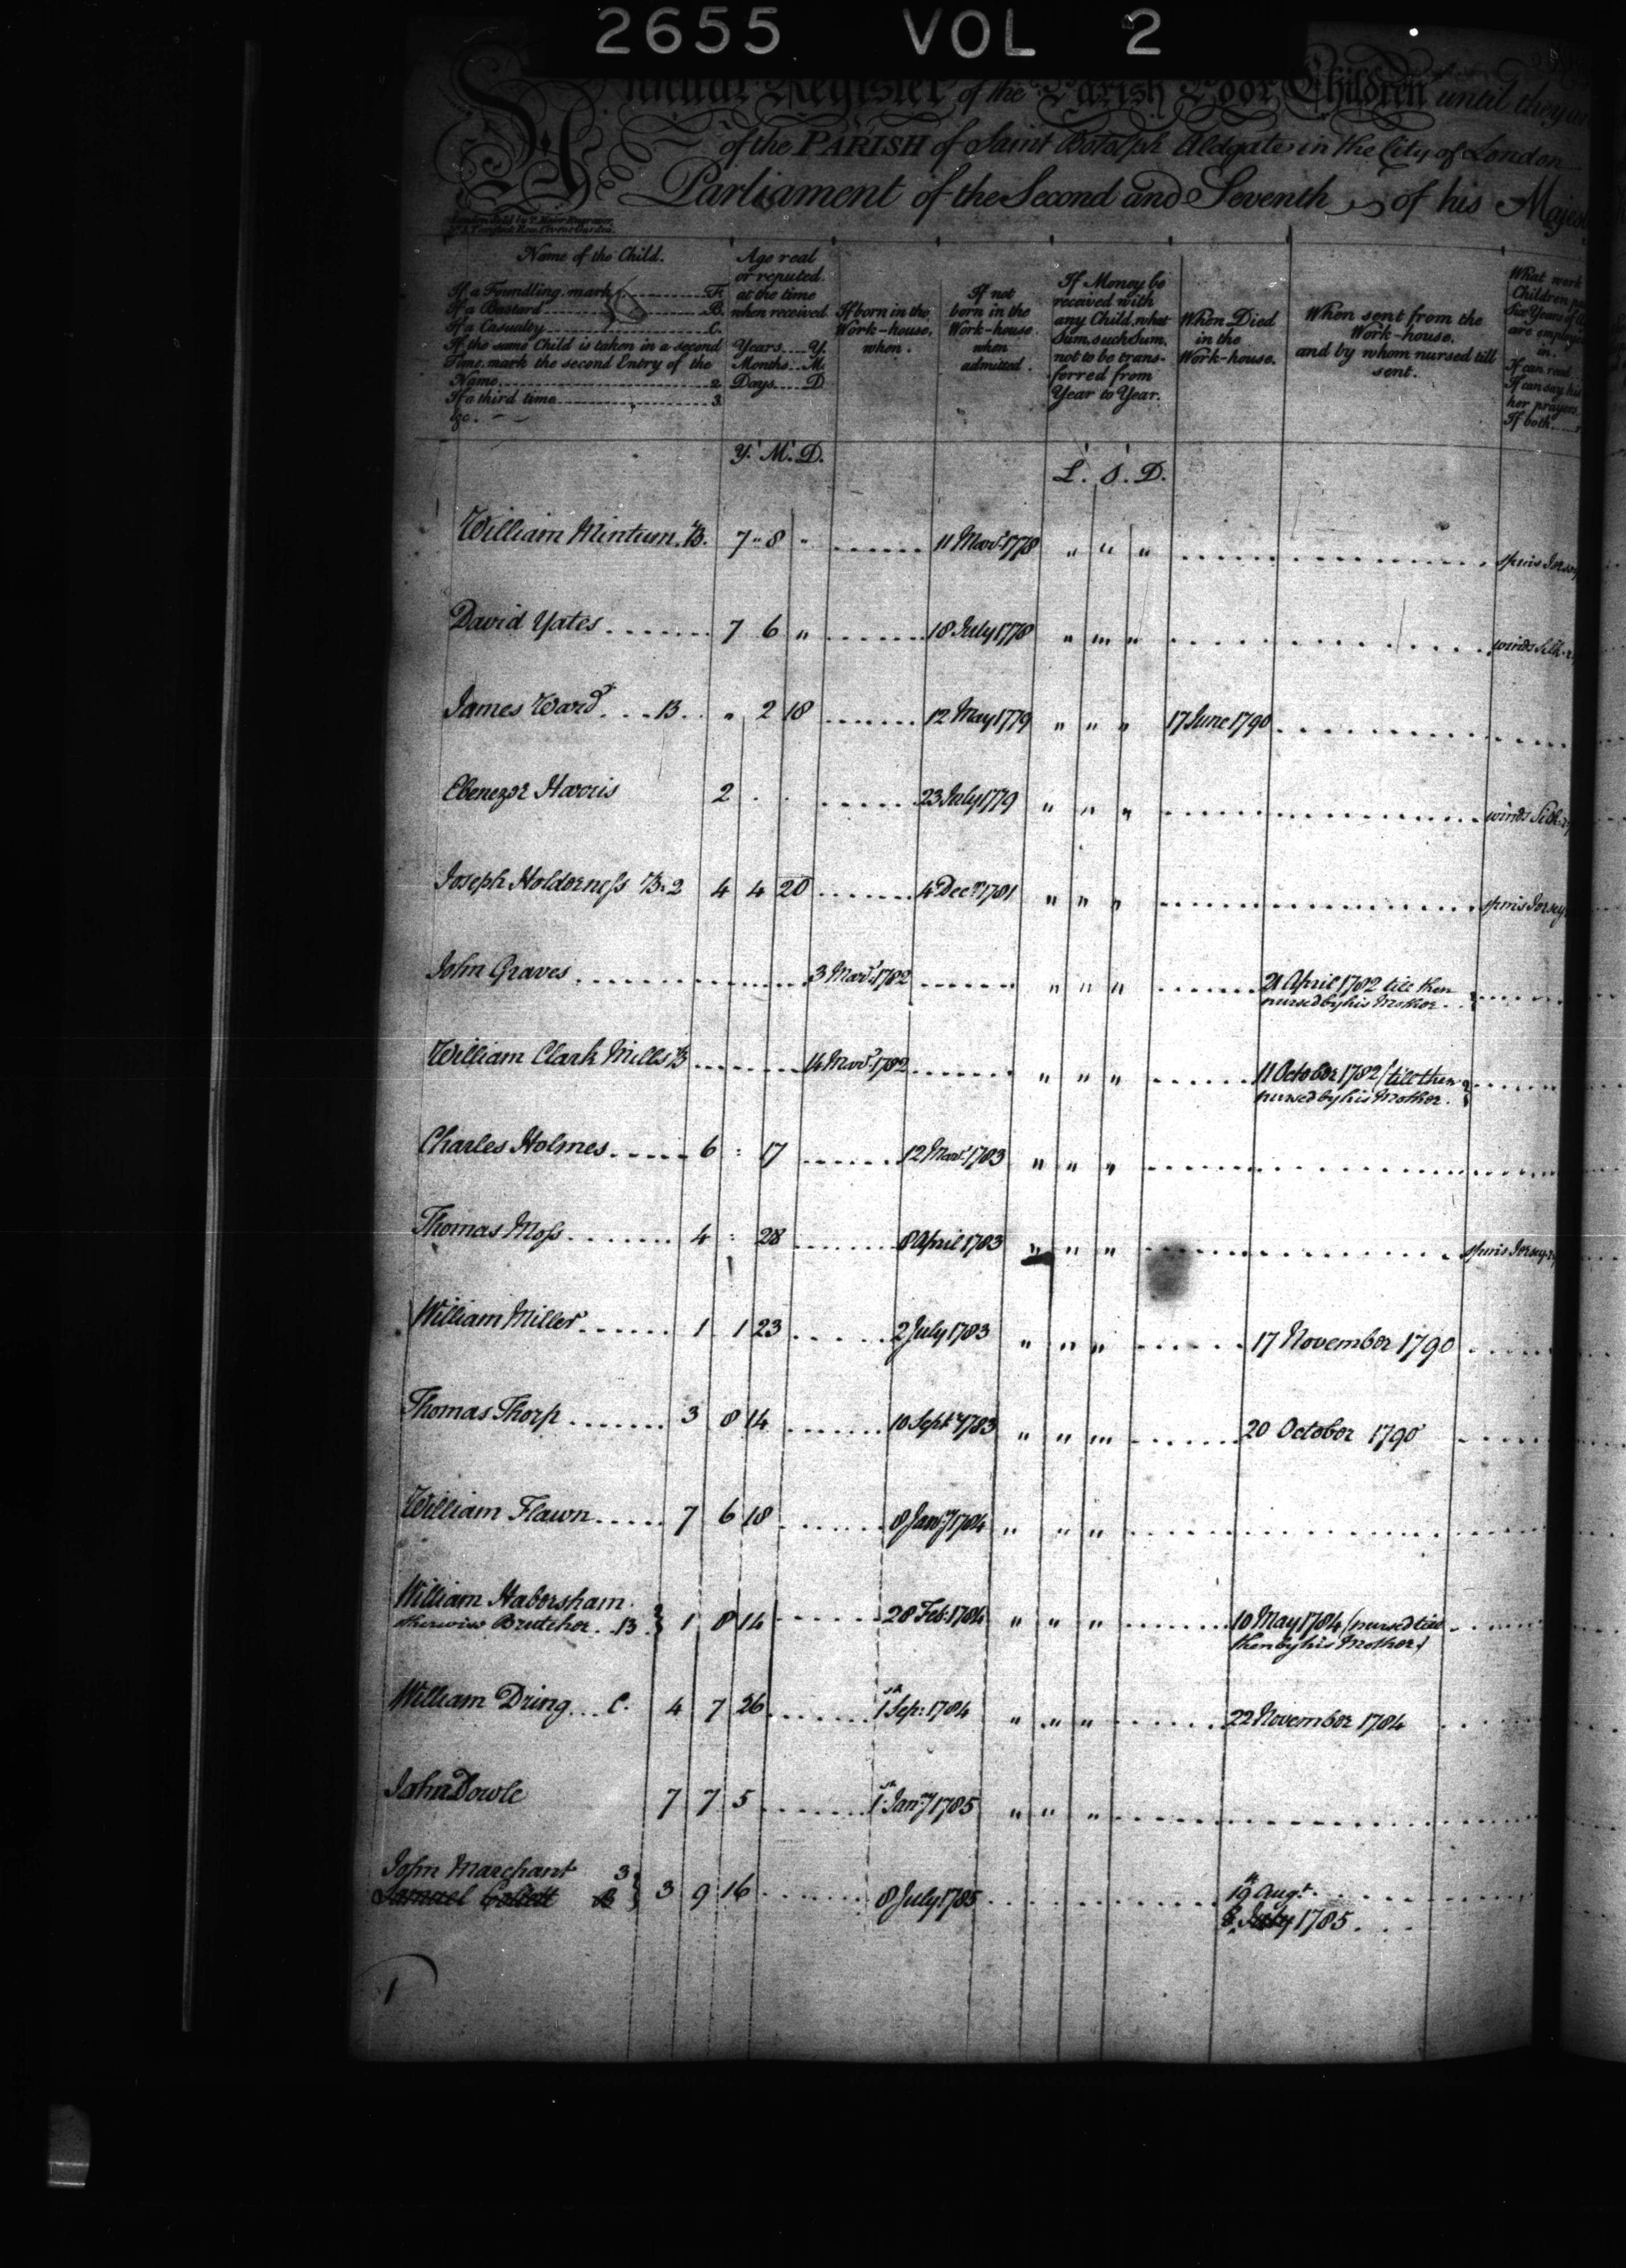 2655 VOL 2
Annual Register of the Parish Poor Children until they
of the PARISH of Saint Botolph Aldgate in the City of London
Parliament of the Second and Seventh of his Majes
Name of the Child.
If a Foundling mark F.
If a Bastard B.
If a Casualty C.
If the same Child is taken in a second
Time, mark the second Entry of the
Name 2
If a third time 3
&c.
Age real
or reputed
at the time
when received
Years Y.
Months M.
Days D
If born in the
Work-house,
when.
If not
born in the
Work-house
when
admitted.
If Money be
received with
any Child, what
Sum, such Sum,
not to be trans-
ferred from
Year to Year.
When Died
in the
Work-house.
When sent from the
Work-house.
and by whom nursed till
sent.
What work
Children
Six Years of
are employe
in.
If can read
If can say his
her prayers
If both
Y. M. D.
L. S. D.
William Minturn. B. 7 " 8 " 11 Mar: 1778 " " " spins Jersey
David Yates 7 6 " 18 July 1778 " " " winds Silk
James Ward B. " 2 18 12 May 1779 " " " 17 June 1790
Ebenezer Harris 2 23 July 1779 " " " winds Silk
Joseph Holderness B. 2 4 4 20 4 Decr 1781 " " " spins Jersey
John Graves 3 Mar: 1782 " " " 21 April 1782 till then
nursed by his Mother.
William Clark Mills B 14 Mar: 1782 " " " 11 October 1782 (till then
nursed by his Mother.
Charles Holmes 6 : 17 12 Mar: 1783 " " "
Thomas Moss 4 : 28 8 April 1783 " " " spins Jersey
William Miller 1 1 23 2 July 1783 " " " 17 November 1790
Thomas Thorp 3 8 14 10 Septr 1783 " " " 20 October 1790
William Flawn 7 6 18 8 Jany 1784 " " "
William Habersham
otherwise Brutcher. B. } 1 8 14 28 Feb: 1784 " " " 10 May 1784 (nursed till
then by his Mother)
William Dring C. 4 7 26 1st Sep: 1784 " " " 22 November 1784
John Dowle 7 7 5 1st Jany 1785 " " "
John Marchant 3
Samuel Collett B } 3 9 16 8 July 1785 19 Augt.
8 July 1785.
1